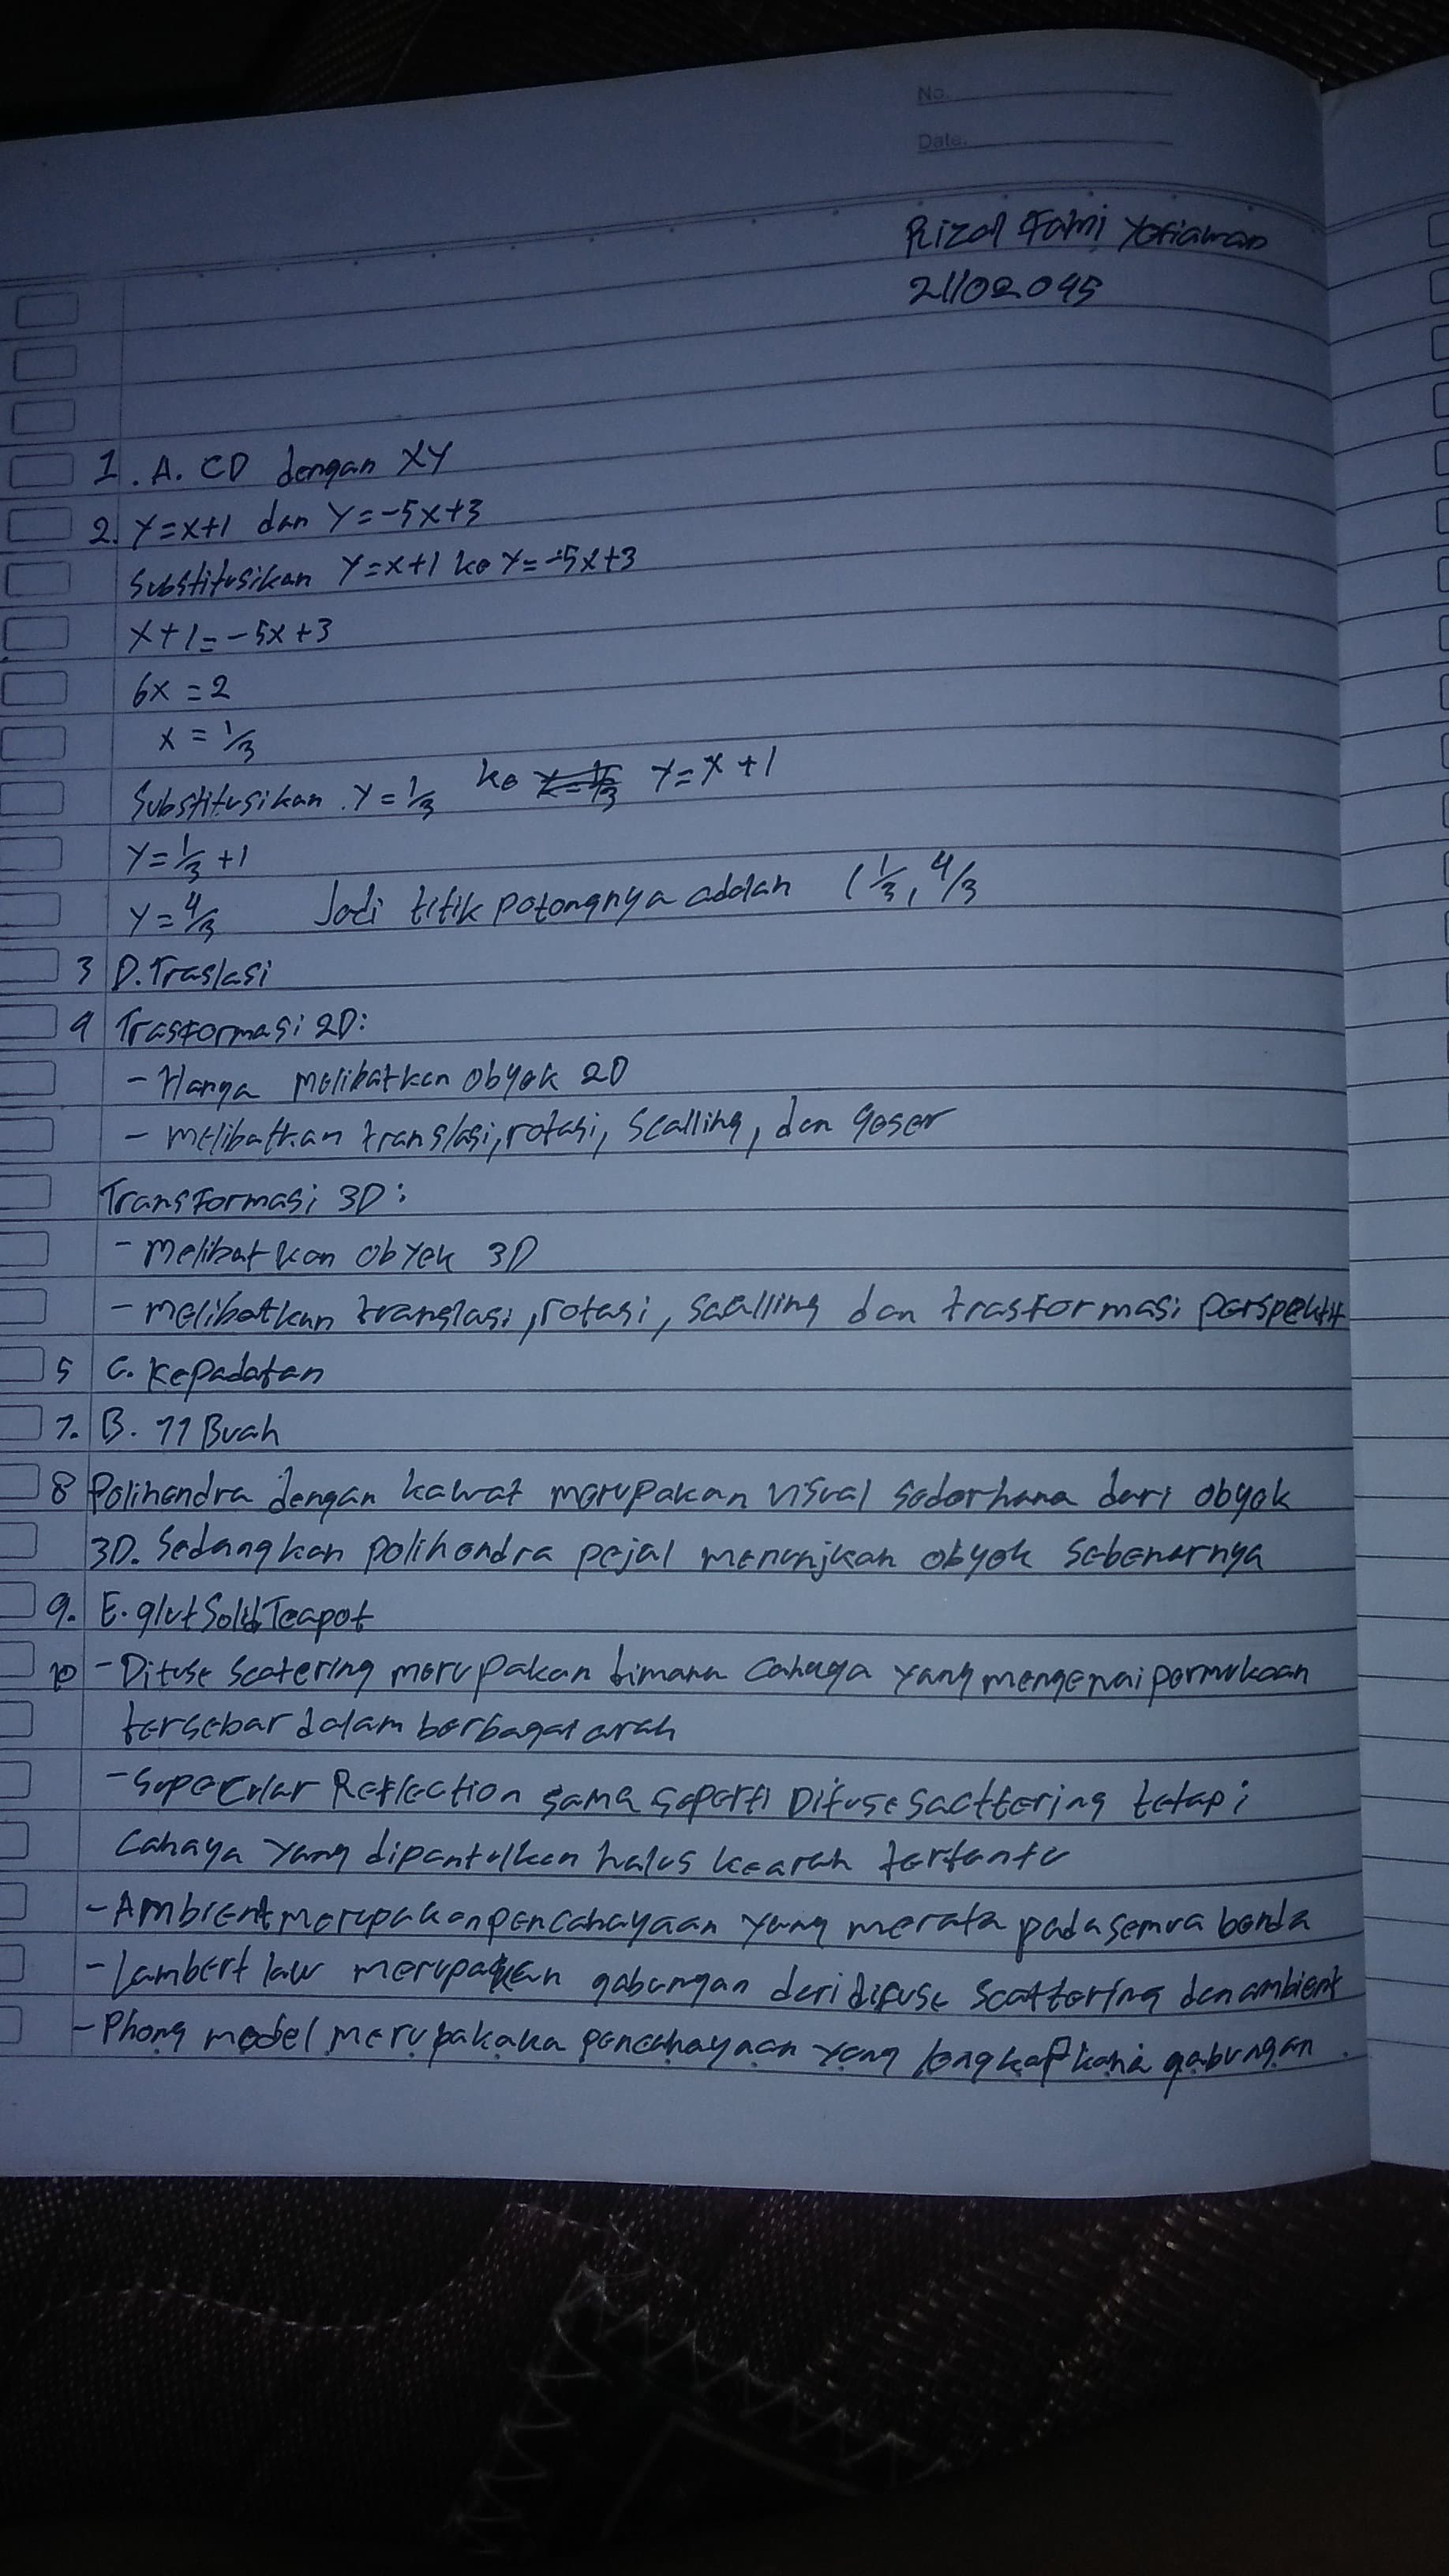 No.
Date.
Rizal Fahmi Yofiawan
21102045
1. A. CD dengan XY
2. Y=x+1 dan Y=-5x+3
Substitusikan Y=x+1 ke Y=-5x+3
x+1=-5x+3
6x = 2
x = 1/3
Substitusikan Y=1/3 ke Y=x+1
Y=1/3+1
Y=4/3 Jadi titik potongnya adalah (1/3, 4/3
3 D. Traslasi
4 Trasformasi 2D:
- Hanya melibatkan obyek 2D
- melibatkan translasi, rotasi, Scalling, dan Geser
Transformasi 3D:
- Melibatkan Obyek 3D
- melibatkan translasi, rotasi, scalling dan trasformasi perspektif
5 C. Kepadatan
7. B. 11 Buah
8 Polihendra dengan kawat merupakan visual sederhana dari obyek
3D. Sedangkan polihendra pejal menunjkan obyek sebenarnya
9. E. glutSolidTeapot
10 - Difuse Scatering merupakan dimana cahaya yang mengenai permukaan
tersebar dalam berbagai arah
- Supecular Reflection sama seperti Difuse Sacttering tetapi
cahaya yang dipantulkan halus kearah tertentu
- Ambient merupakan pencahayaan yang merata pada semua benda
- Lambert law merupakan gabungan dari difuse scattering dan ambient
- Phong model merupakaka pencahayaan yang lengkap gabungan